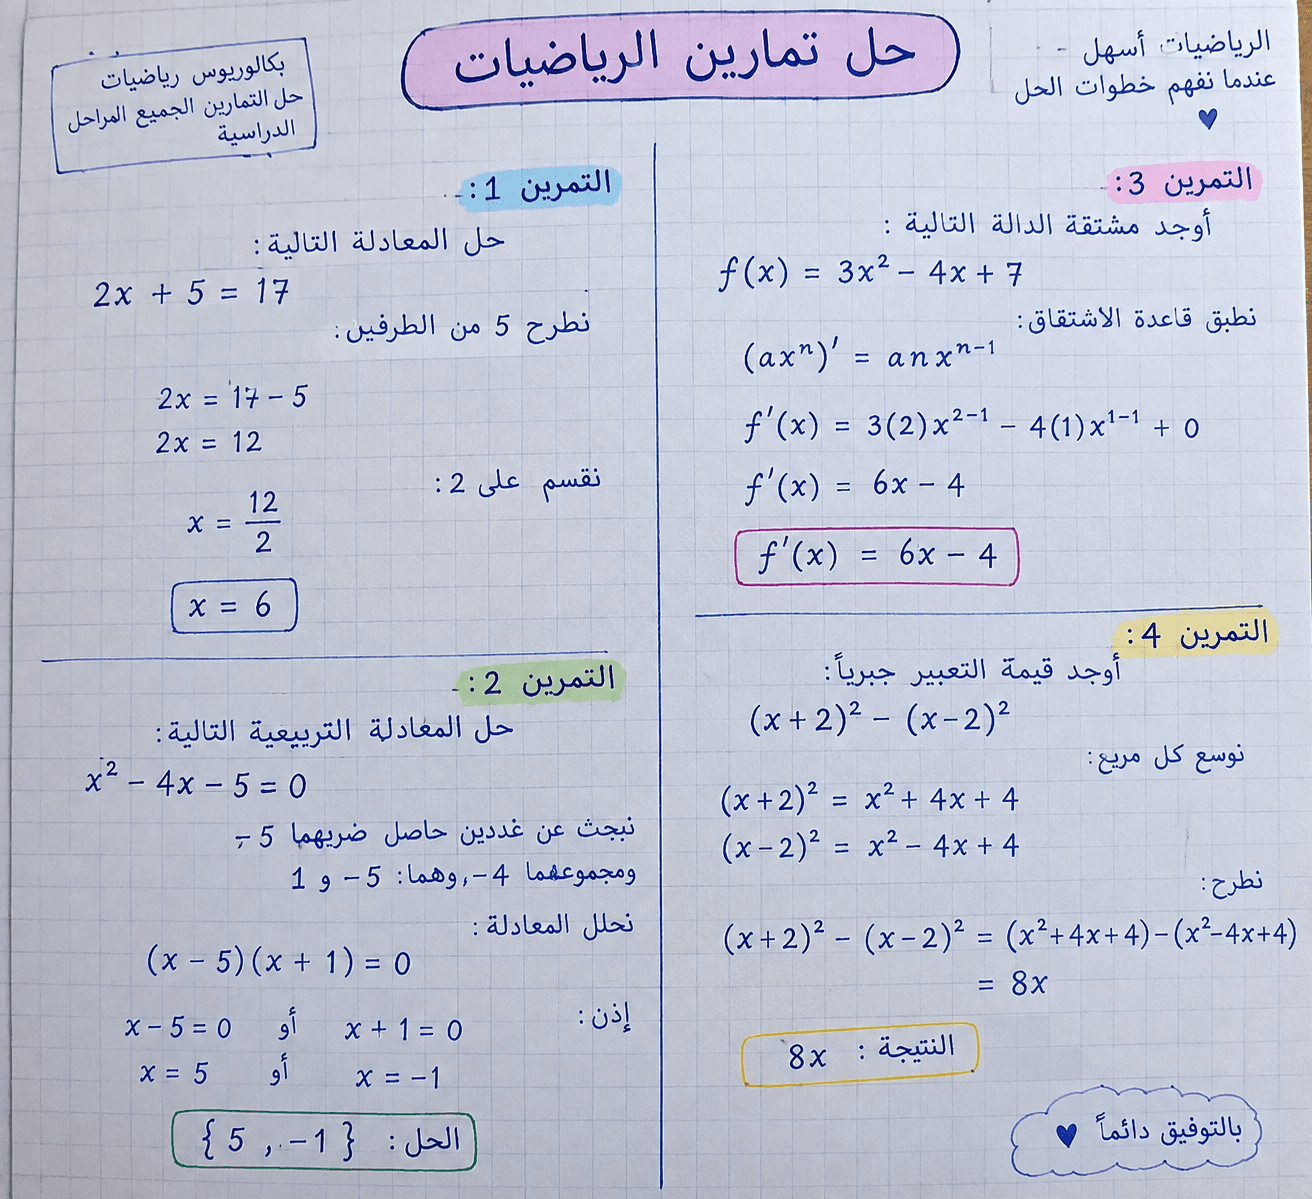 حل تمارين الرياضيات
الرياضيات أسهل
عندما نفهم خطوات الحل
♥
بكالوريوس رياضيات
حل التمارين الجميع المراحل
الدراسية
التمرين 1:
حل المعادلة التالية:
2x + 5 = 17
نطرح 5 من الطرفين:
2x = 17 - 5
2x = 12
نقسم على 2:
x = 12/2
x = 6
التمرين 2:
حل المعادلة التربيعية التالية:
x² - 4x - 5 = 0
نبحث عن غددين حاصل ضربهما 5 -
ومجموعهما 4-, وهما: 5- و 1
نحلل المعادلة:
(x - 5)(x + 1) = 0
إذن:
x - 5 = 0 أو x + 1 = 0
x = 5 أو x = -1
الحل: { 5 , -1 }
التمرين 3:
أوجد مشتقة الدالة التالية:
f(x) = 3x² - 4x + 7
نطبق قاعدة الاشتقاق:
(axⁿ)' = anxⁿ⁻¹
f'(x) = 3(2)x²⁻¹ - 4(1)x¹⁻¹ + 0
f'(x) = 6x - 4
f'(x) = 6x - 4
التمرين 4:
أوجد قيمة التعبير جبرياً:
(x+2)² - (x-2)²
نوسع كل مربع:
(x+2)² = x² + 4x + 4
(x-2)² = x² - 4x + 4
نطرح:
(x+2)² - (x-2)² = (x²+4x+4)-(x²-4x+4)
= 8x
النتيجة: 8x
بالتوفيق دائماً ♥